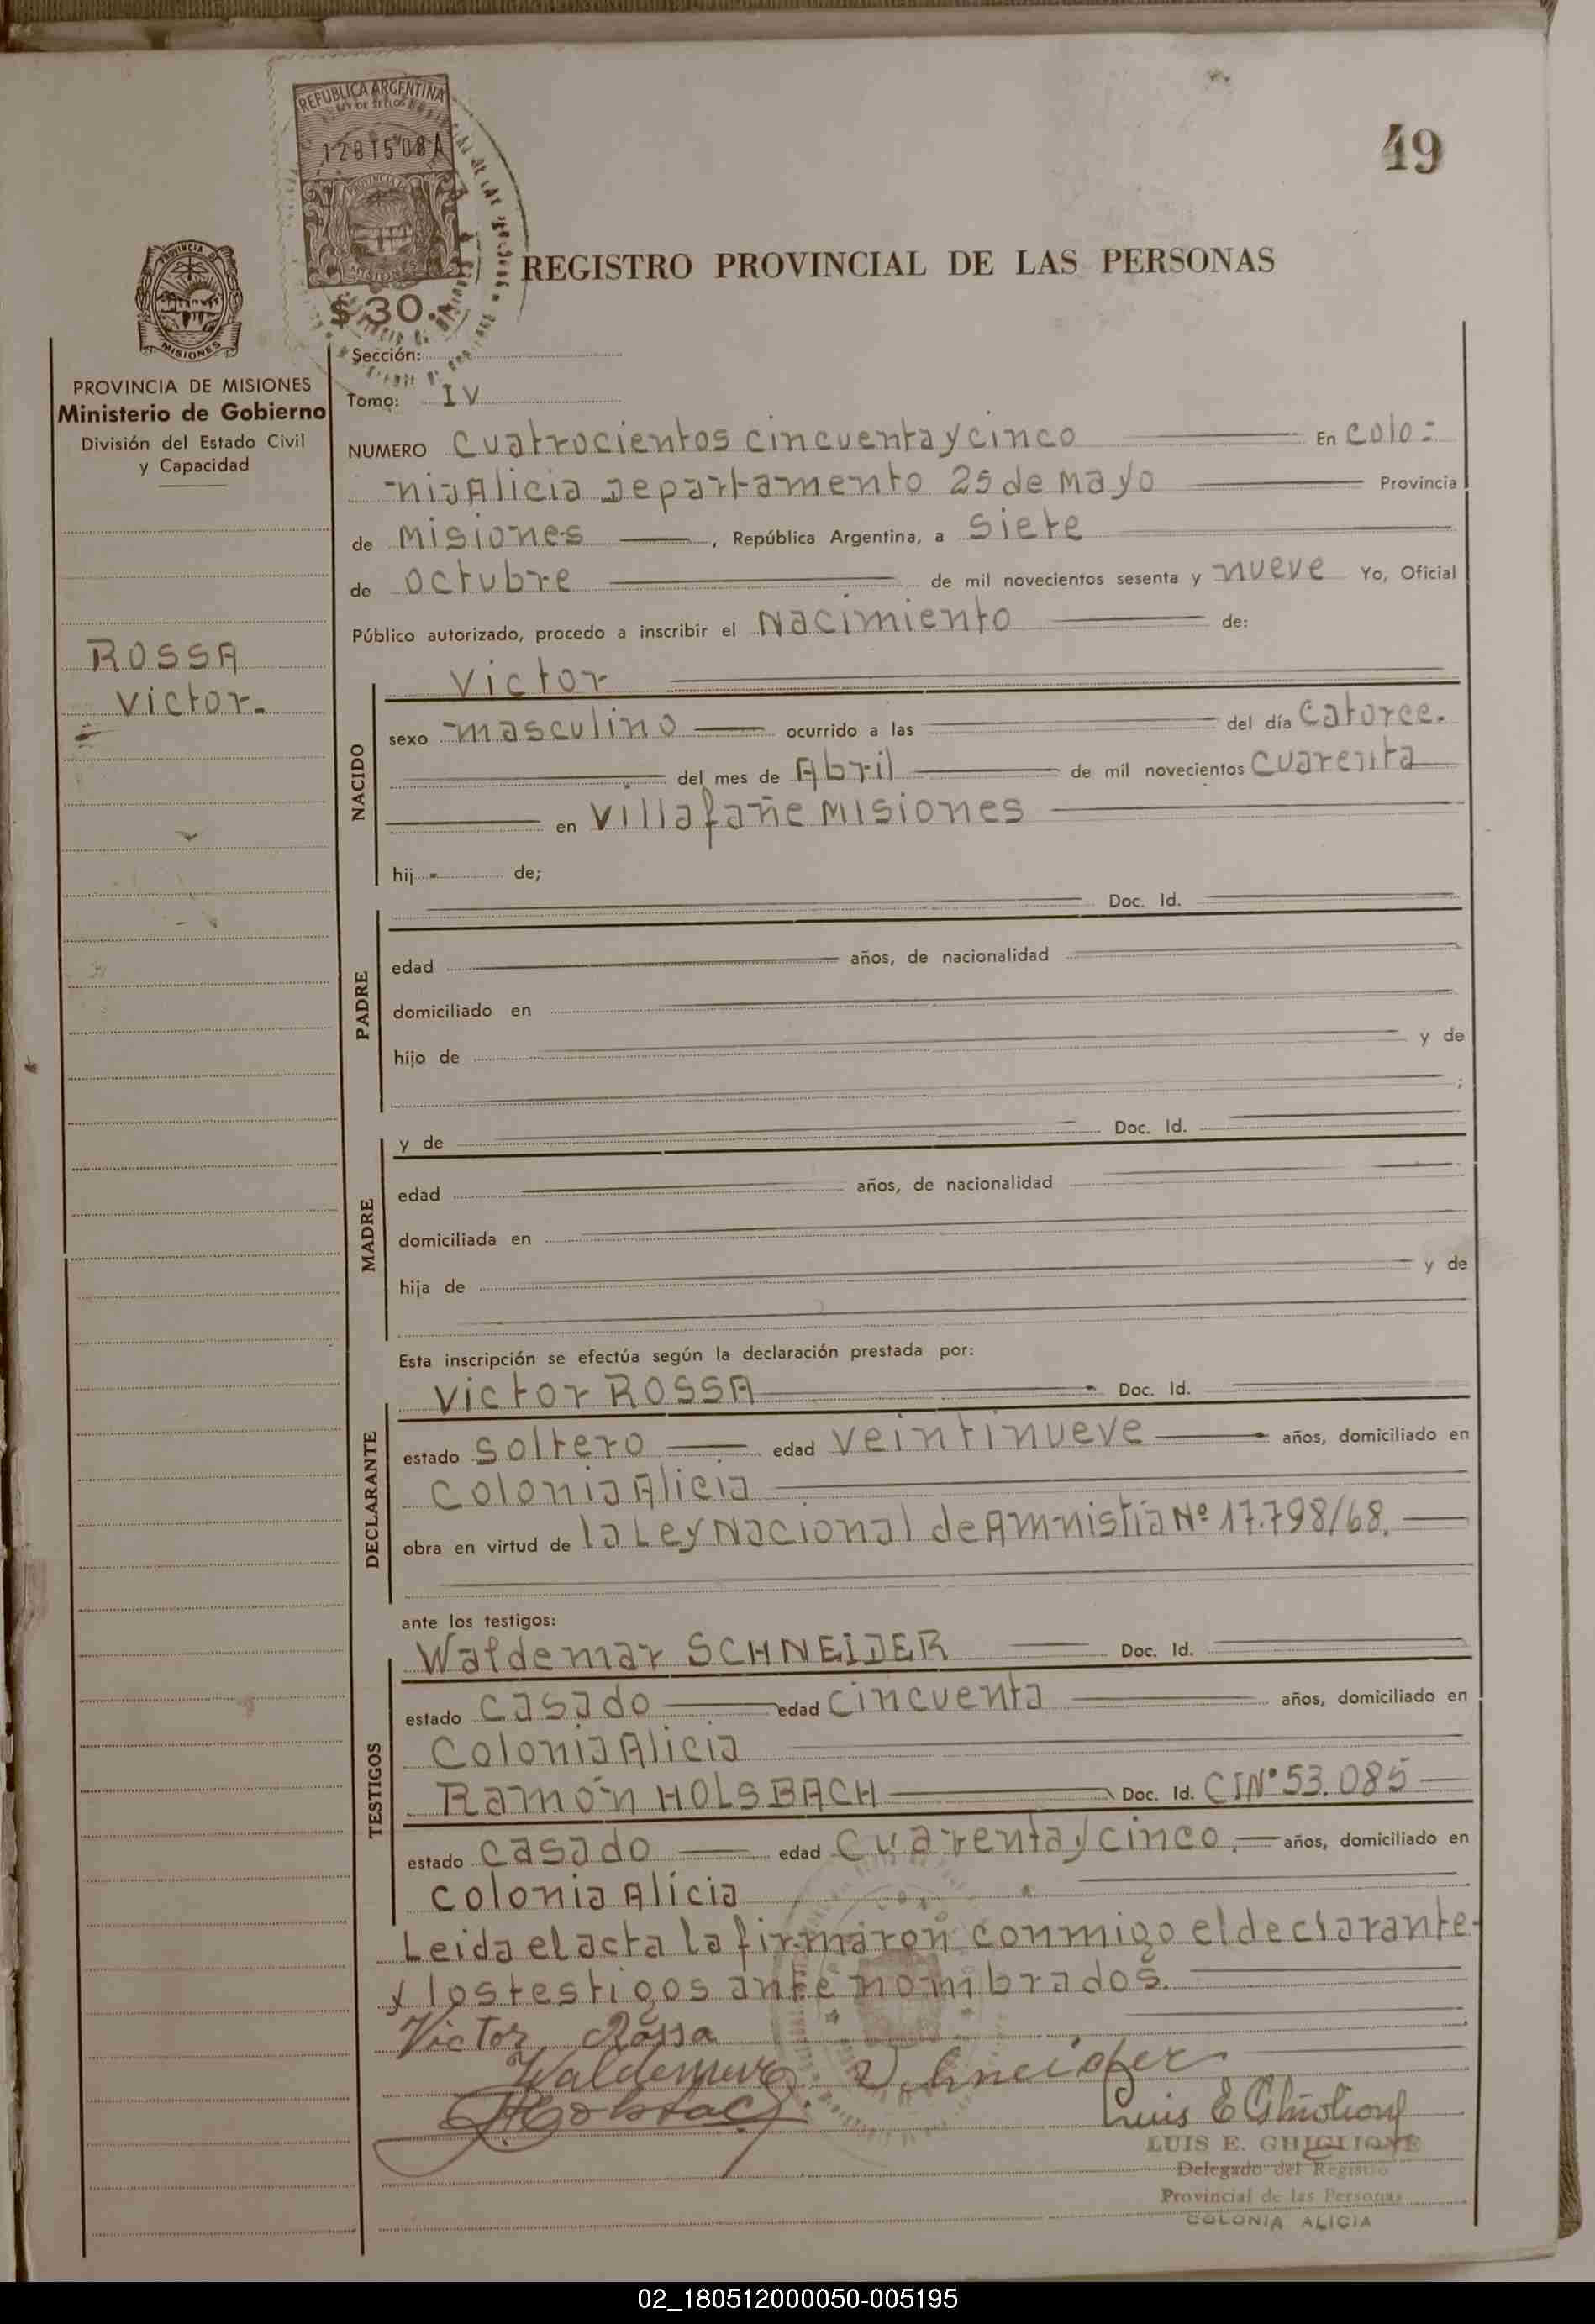 49
REPUBLICA ARGENTINA
LEY DE SELLOS
1281508A
PROVINCIA DE
MISIONES
$ 30.-
PROVINCIA DE
MISIONES
REGISTRO PROVINCIAL DE LAS PERSONAS
PROVINCIA DE MISIONES
Ministerio de Gobierno
División del Estado Civil
y Capacidad
ROSSA
Victor.
Sección:
Tomo: IV
NUMERO Cuatrocientos cincuenta y cinco En Colo=
nia Alicia Departamento 25 de Mayo Provincia
de Misiones, República Argentina, a Siete
de Octubre de mil novecientos sesenta y nueve Yo, Oficial
Público autorizado, procedo a inscribir el Nacimiento de:
NACIDO
Victor
sexo masculino ocurrido a las del día Catorce.
del mes de Abril de mil novecientos cuarenta
en Villafañe Misiones
hij de;
PADRE
Doc. Id.
edad años, de nacionalidad
domiciliado en
hijo de y de
;
MADRE
y de Doc. Id.
edad años, de nacionalidad
domiciliada en
hija de y de
Esta inscripción se efectúa según la declaración prestada por:
DECLARANTE
Victor ROSSA Doc. Id.
estado Soltero edad veintinueve años, domiciliado en
Colonia Alicia
obra en virtud de la Ley Nacional de Amnistía Nº 17.798/68.
ante los testigos:
TESTIGOS
Waldemar SCHNEIDER Doc. Id.
estado Casado edad Cincuenta años, domiciliado en
Colonia Alicia
Ramón HOLSBACH Doc. Id. CIN° 53.085
estado Casado edad Cuarenta y cinco. años, domiciliado en
Colonia Alicia
Leida el acta la firmaron conmigo el declarante
y los testigos ante nombrados.
Victor Rossa
Waldemar Schneider
Luis E Ghiglione
LUIS E. GHIGLIONE
Delegado del Registro
Provincial de las Personas
COLONIA ALICIA
02_180512000050-005195